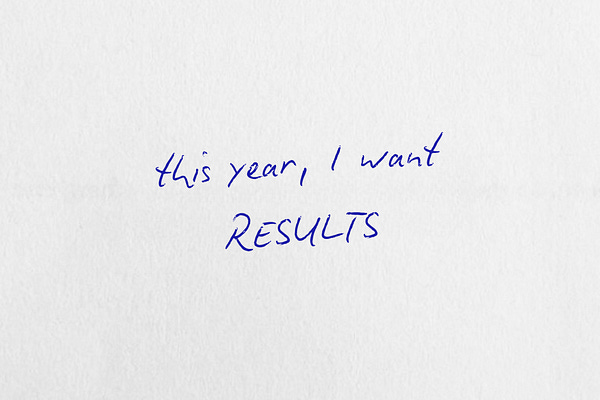 this year, I want
RESULTS